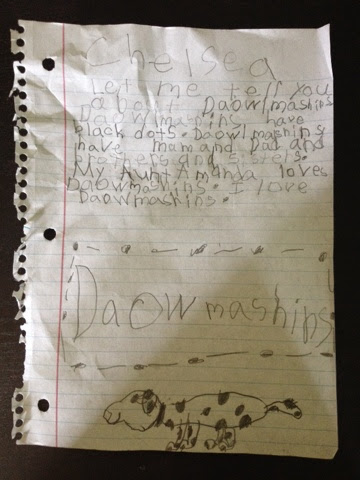 Chelsea
Let me tell you
about Daowlmashins
Daowlmashins have
black dots. Daowlmashins
have mam and Dad and
brothers and sisters.
My Aunt Amanda loves
Daowmashins. I love
Daowmashins.
Daowmashins